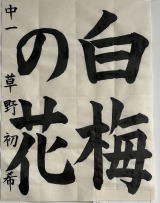 白梅
の花
中一 草野初希